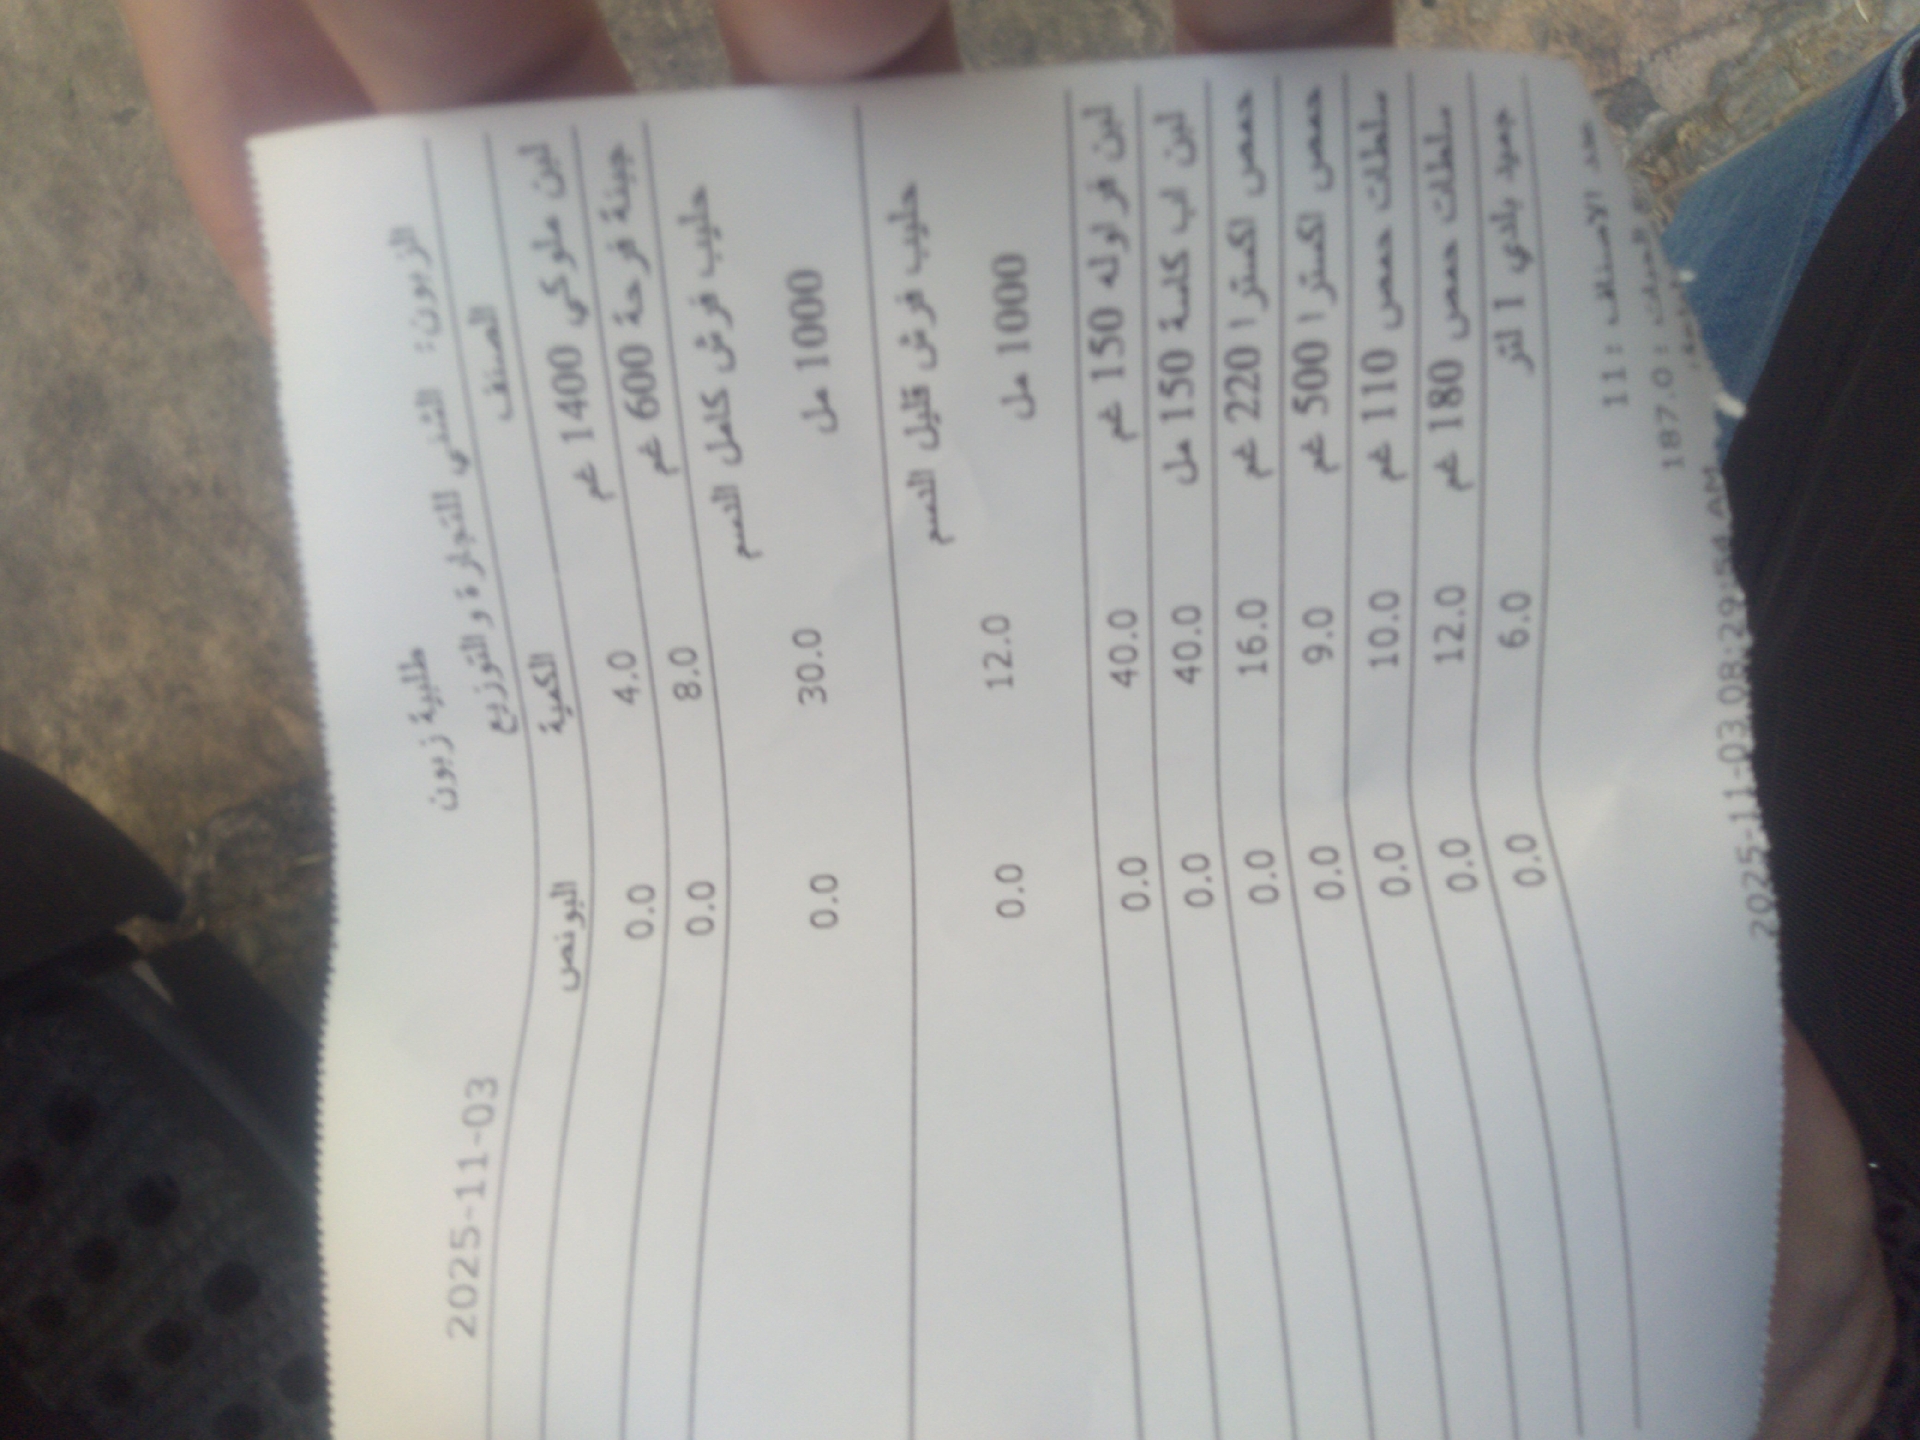 طلبية زبون
2025-11-03
الزبون: الشلبي للتجارة و التوزيع
الصنف الكمية البونص
لبن ملوكي 1400 غم 4.0 0.0
جبنة فرحة 600 غم 8.0 0.0
حليب فرش كامل الدسم
1000 مل 30.0 0.0
حليب فرش قليل الدسم
1000 مل 12.0 0.0
لبن فراوله 150 غم 40.0 0.0
لبن اب كاسة 150 مل 40.0 0.0
حمص اكسترا 220 غم 16.0 0.0
حمص اكسترا 500 غم 9.0 0.0
سلطات حمص 110 غم 10.0 0.0
سلطات حمص 180 غم 12.0 0.0
جميد بلدي 1 لتر 6.0 0.0
عدد الاصناف : 11
187.0 :
2025-11-03 08:29:54 AM